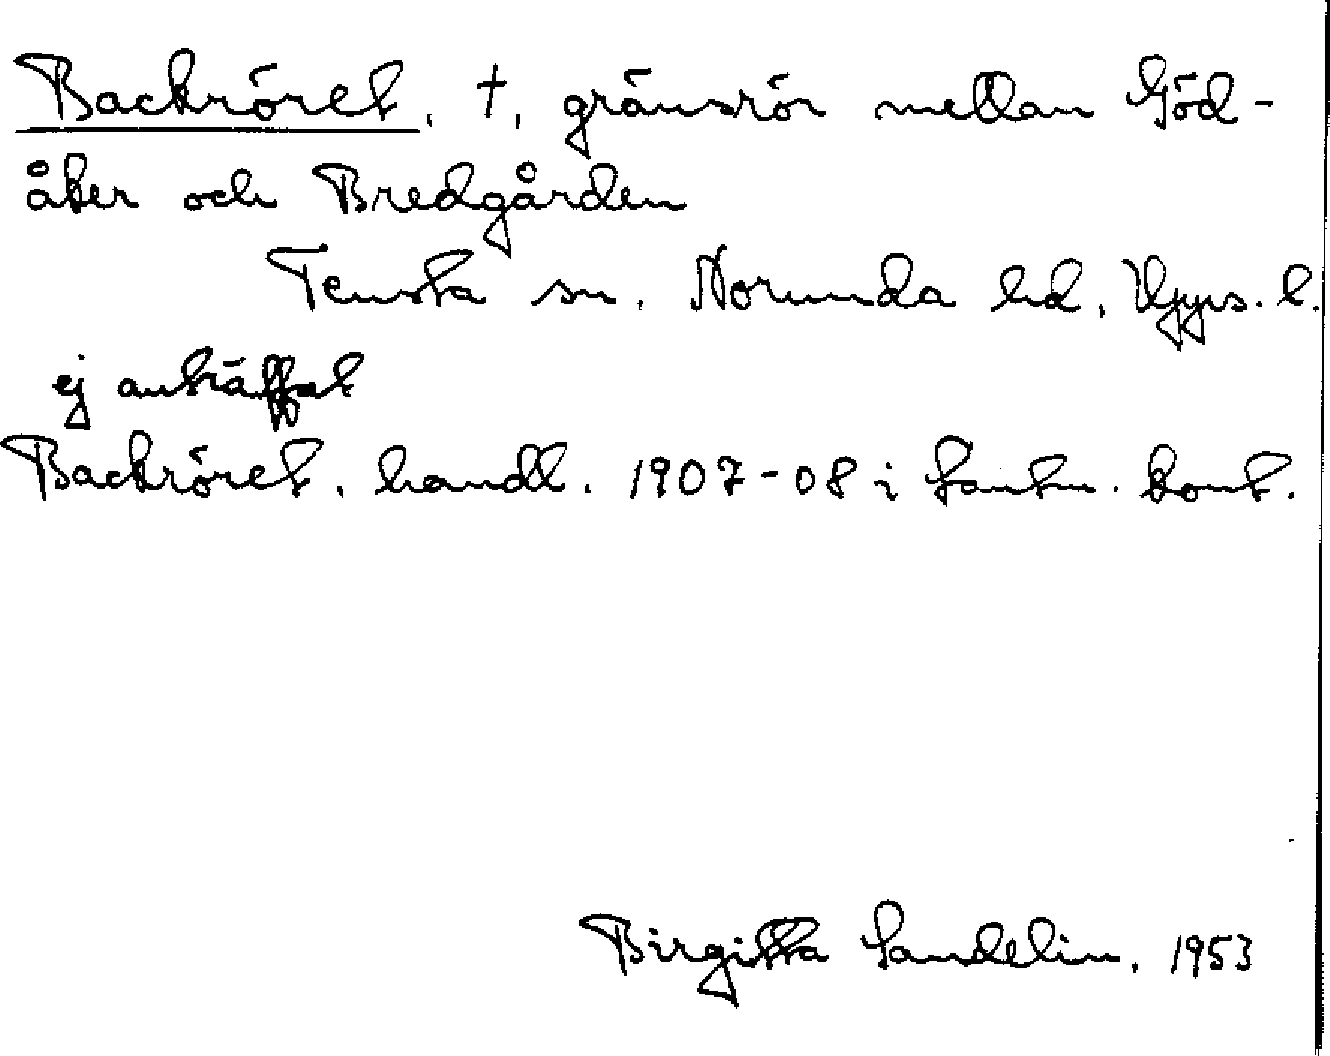 Backröret, †, gränsrör mellan Göd-
åker och Bredgården
Tensta sn, Norunda hd, Upps. l.
ej anträffat
Backröret, handl. 1907-08 i Lantm. kont.
Birgitta Sandelin, 1953